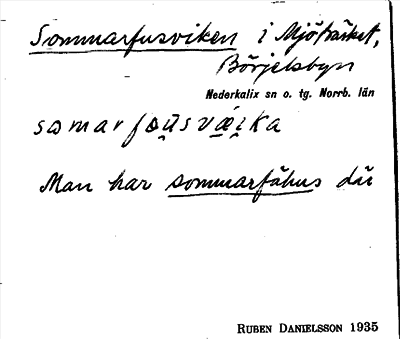 Sommarfusviken i Mjöträsket,
Börjelsbyn
Nederkalix sn o. tg. Norrb. län
somarfou̯svæi̯ka
Man har sommarfähus där
RUBEN DANIELSSON 1935